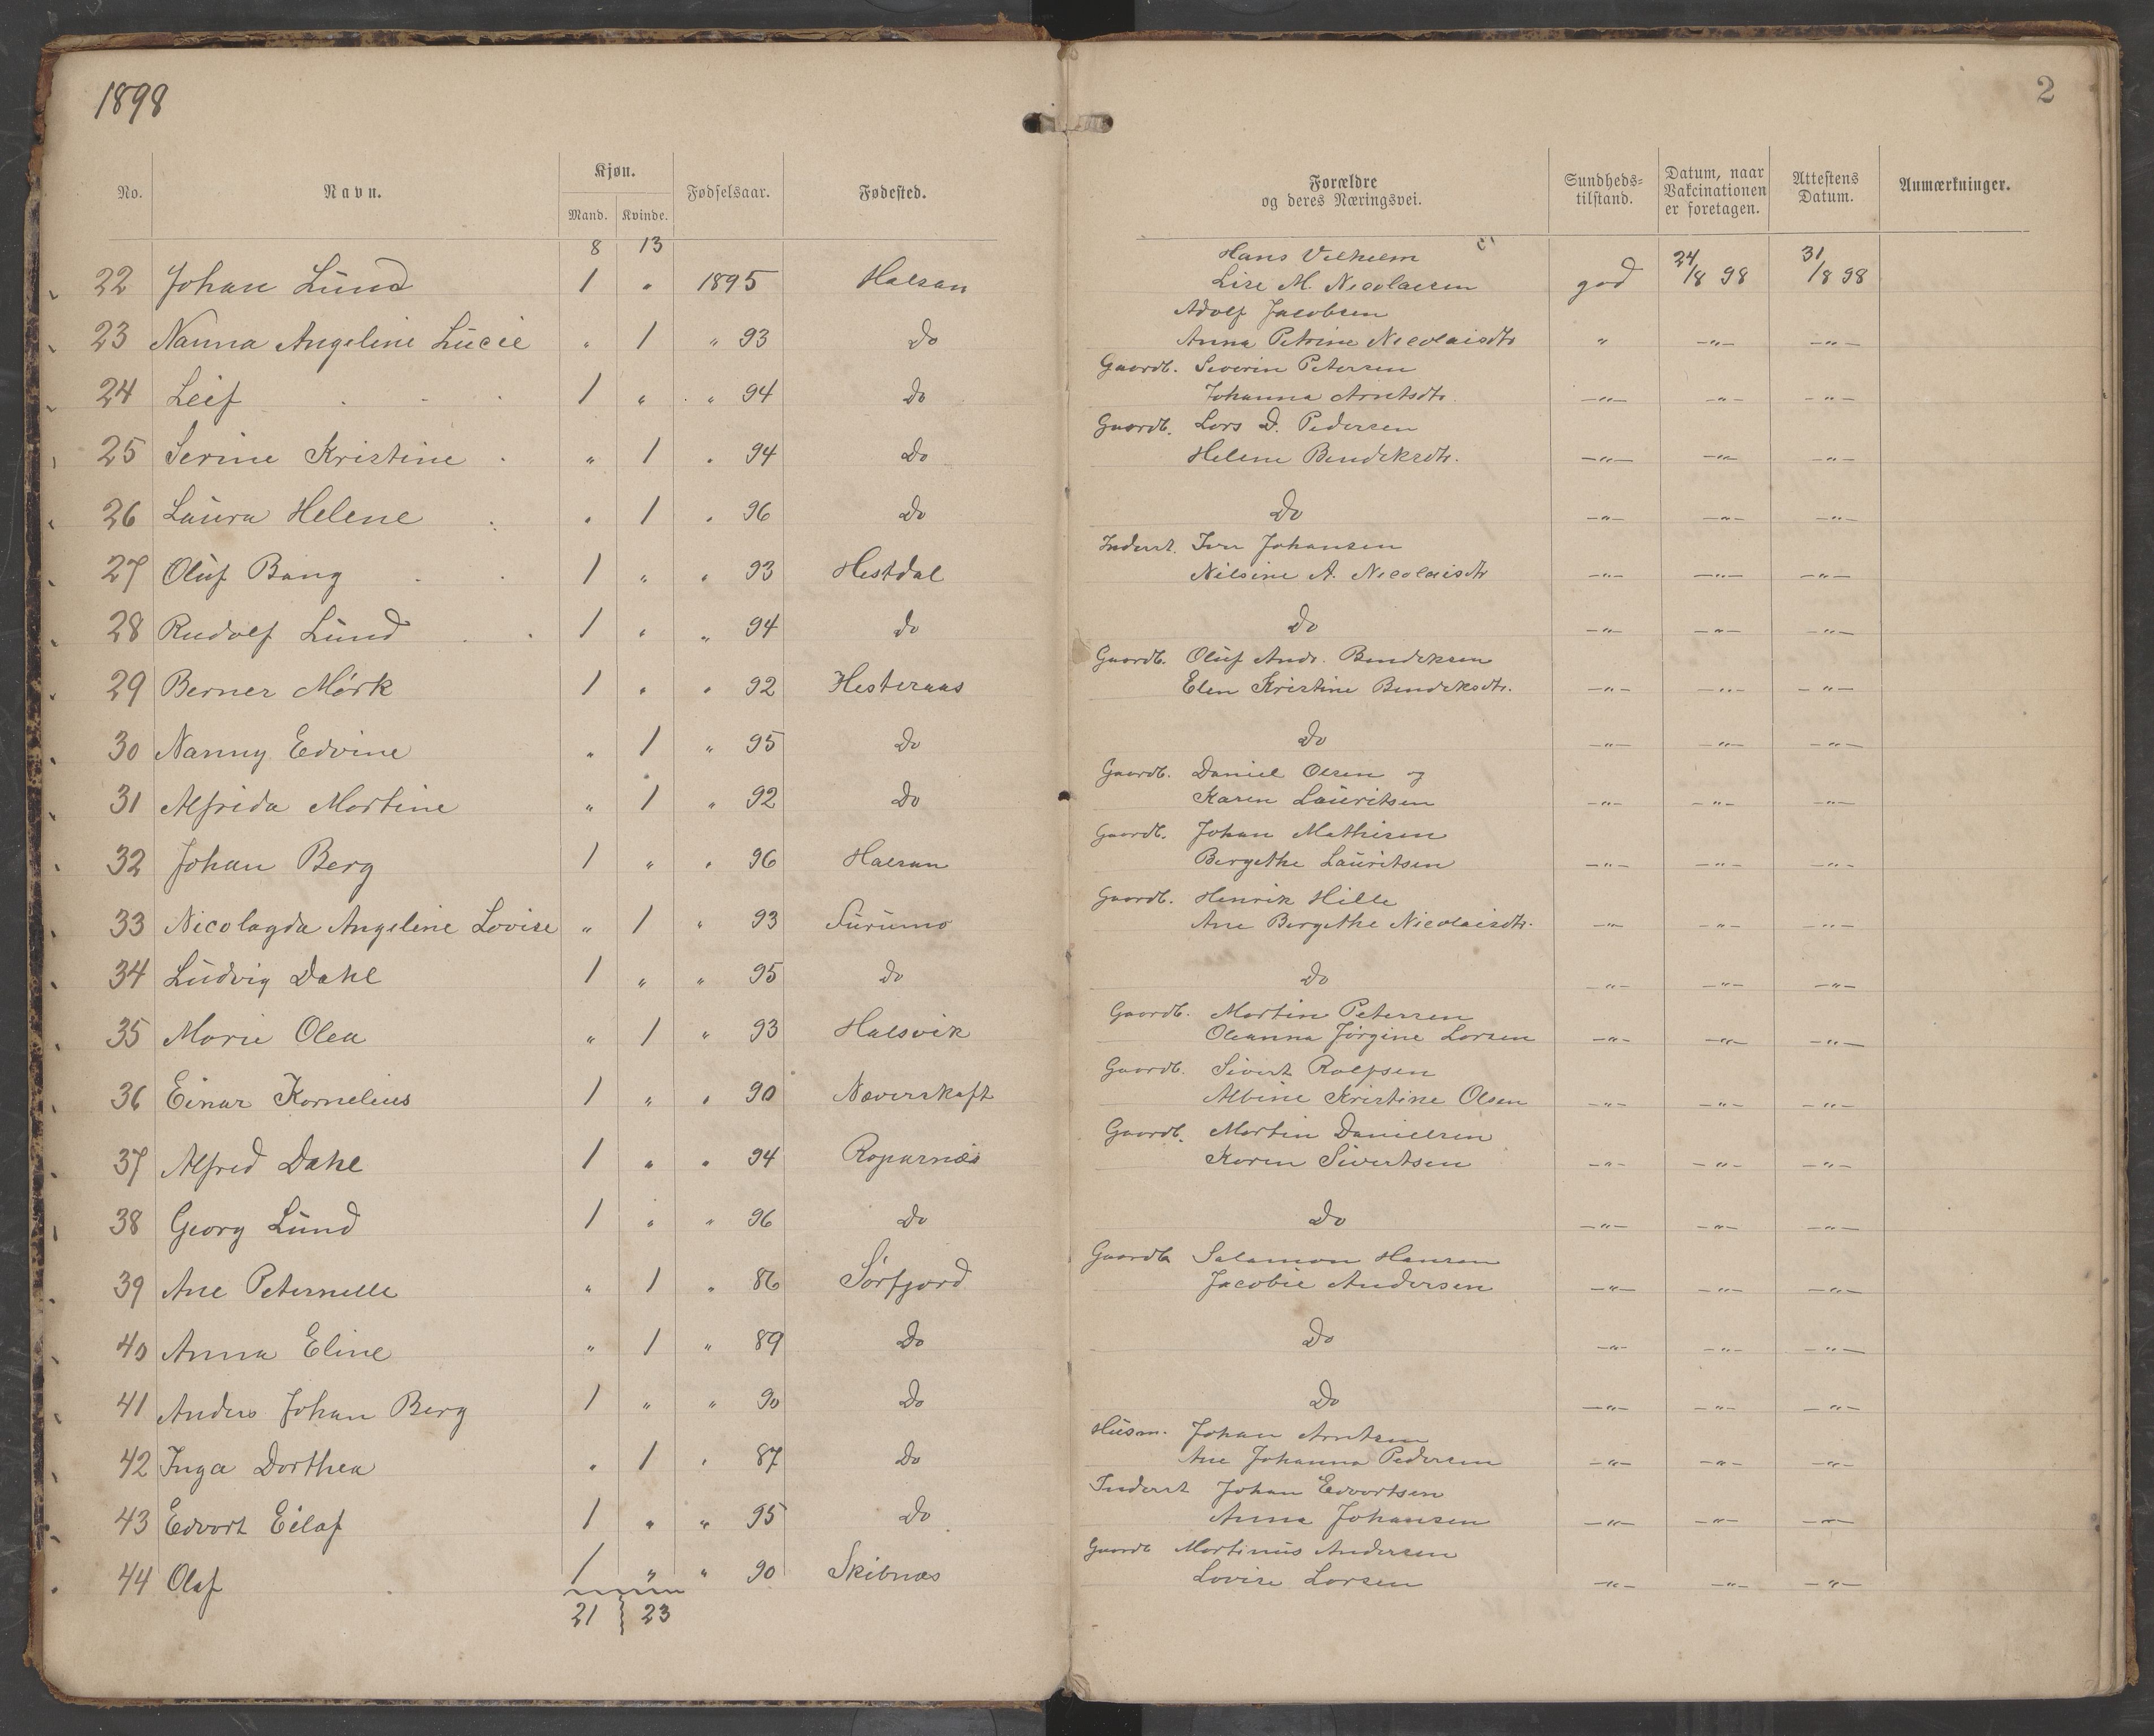 1898
2
No. Navn. Kjøn. Fødselsaar. Fødested. Forældre og deres Næringsvei. Sundheds=tilstand. Datum, naar Vakcinationen er foretagen. Attestens Datum. Anmærkninger.
Mand. Kvinde.
8 13
Hans Vilhelm
22 Johan Lund 1 " 1895 Halsan Lise M. Nicolaisen god 24/8 98 31/8 98
Adolf Jacobsen
23 Nanna Angeline Lucie " 1 " 93 Do Anna Petrine Nicolaisdtr " —"— —"—
Gaardb. Severin Petersen
24 Leif 1 " " 94 Do Johanna Arntsdtr. —"— —"— —"—
Gaardb. Lars D. Pedersen
25 Serine Kristine " 1 " 94 Do Helene Bendiksdtr. —"— —"— —"—
26 Laura Helene " 1 " 96 Do Do —"— —"— —"—
Inderst. Iver Johansen
27 Oluf Bang 1 " " 93 Hestdal Nilsine A. Nicolaisdtr —"— —"— —"—
28 Rudolf Lund 1 " " 94 Do Do —"— —"— —"—
Gaardb. Oluf Andr. Bendiksen
29 Berner Mørk 1 " " 92 Hesteraas Elen Kristine Bendiksdtr. —"— —"— —"—
30 Nanny Edvine " 1 " 95 Do Do —"— —"— —"—
Gaardb. Daniel Olsen og
31 Alfrida Martine " 1 " 92 Do Karen Lauritsen —"— —"— —"—
Gaardb. Johan Mathisen
32 Johan Berg 1 " " 96 Halsan Bergithe Lauritsen —"— —"— —"—
Gaardb. Henrik Hille
33 Nicolagda Angeline Lovise " 1 " 93 Furumo Ane Bergithe Nicolaisdtr. —"— —"— —"—
34 Ludvig Dahl 1 " " 95 do Do —"— —"— —"—
Gaardb. Martin Petersen
35 Marie Olea " 1 " 93 Halsvik Oleanna Jørgine Larsen —"— —"— —"—
Gaardb. Sivert Rolfsen
36 Einar Kornelius 1 " " 90 Næverskaft Albine Kristine Olsen —"— —"— —"—
Gaardb. Martin Danielsen
37 Alfred Dahl 1 " " 94 Roparnæs Karen Sivertsen —"— —"— —"—
38 Georg Lund 1 " " 96 Do Do —"— —"— —"—
Gaardb Salamon Hansen
39 Ane Peternelle " 1 " 86 Sørfjord Jacobie Andersen —"— —"— —"—
40 Anna Eline " 1 " 89 Do Do —"— —"— —"—
41 Anders Johan Berg 1 " " 90 Do Do —"— —"— —"—
Husm. Johan Arntsen
42 Inga Dorthea " 1 " 87 Do Ane Johanna Pedersen —"— —"— —"—
Inderst Johan Edvartsen
43 Edvart Eilaf 1 " " 95 Do Anna Johansen —"— —"— —"—
Gaardb Martinus Andersen
44 Olaf 1 " " 90 Skibnæs Lovise Larsen —"— —"— —"—
21 23